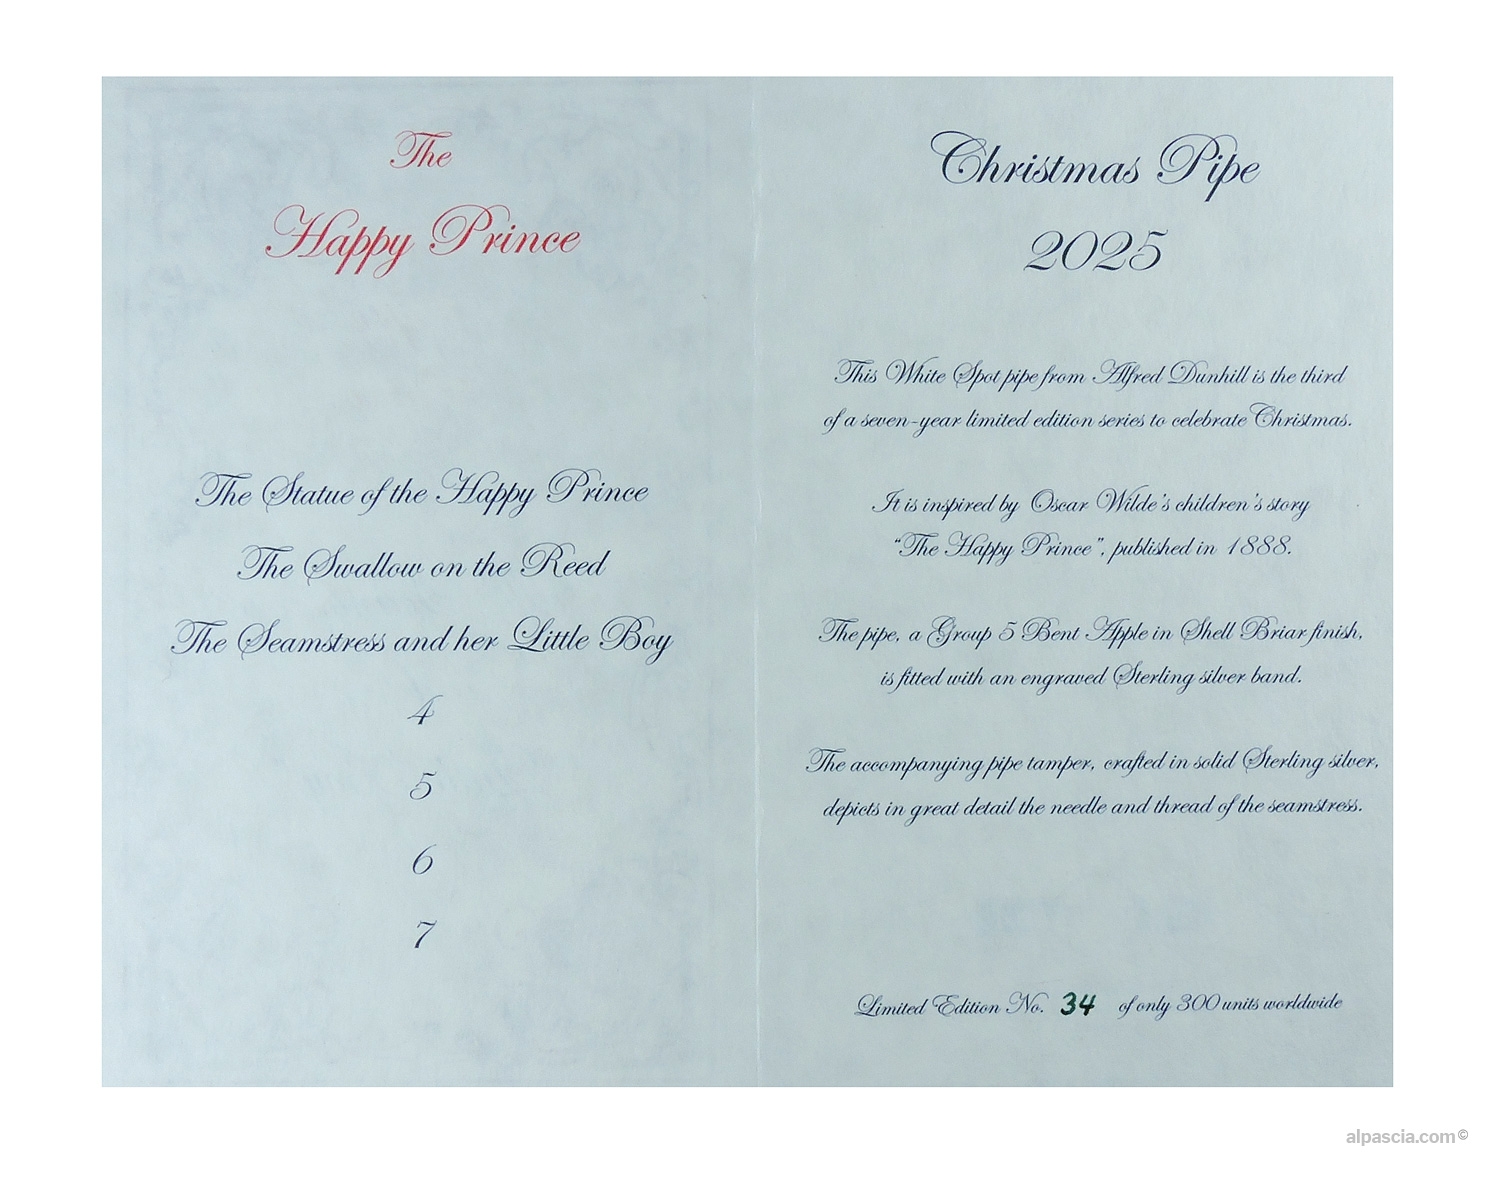 The
Happy Prince
The Statue of the Happy Prince
The Swallow on the Reed
The Seamstress and her Little Boy
4
5
6
7
Christmas Pipe
2025
This White Spot pipe from Alfred Dunhill is the third
of a seven-year limited edition series to celebrate Christmas.
It is inspired by Oscar Wilde's children's story
“The Happy Prince”, published in 1888.
The pipe, a Group 5 Bent Apple in Shell Briar finish,
is fitted with an engraved Sterling silver band.
The accompanying pipe tamper, crafted in solid Sterling silver,
depicts in great detail the needle and thread of the seamstress.
Limited Edition No. 34 of only 300 units worldwide
alpascia.com©